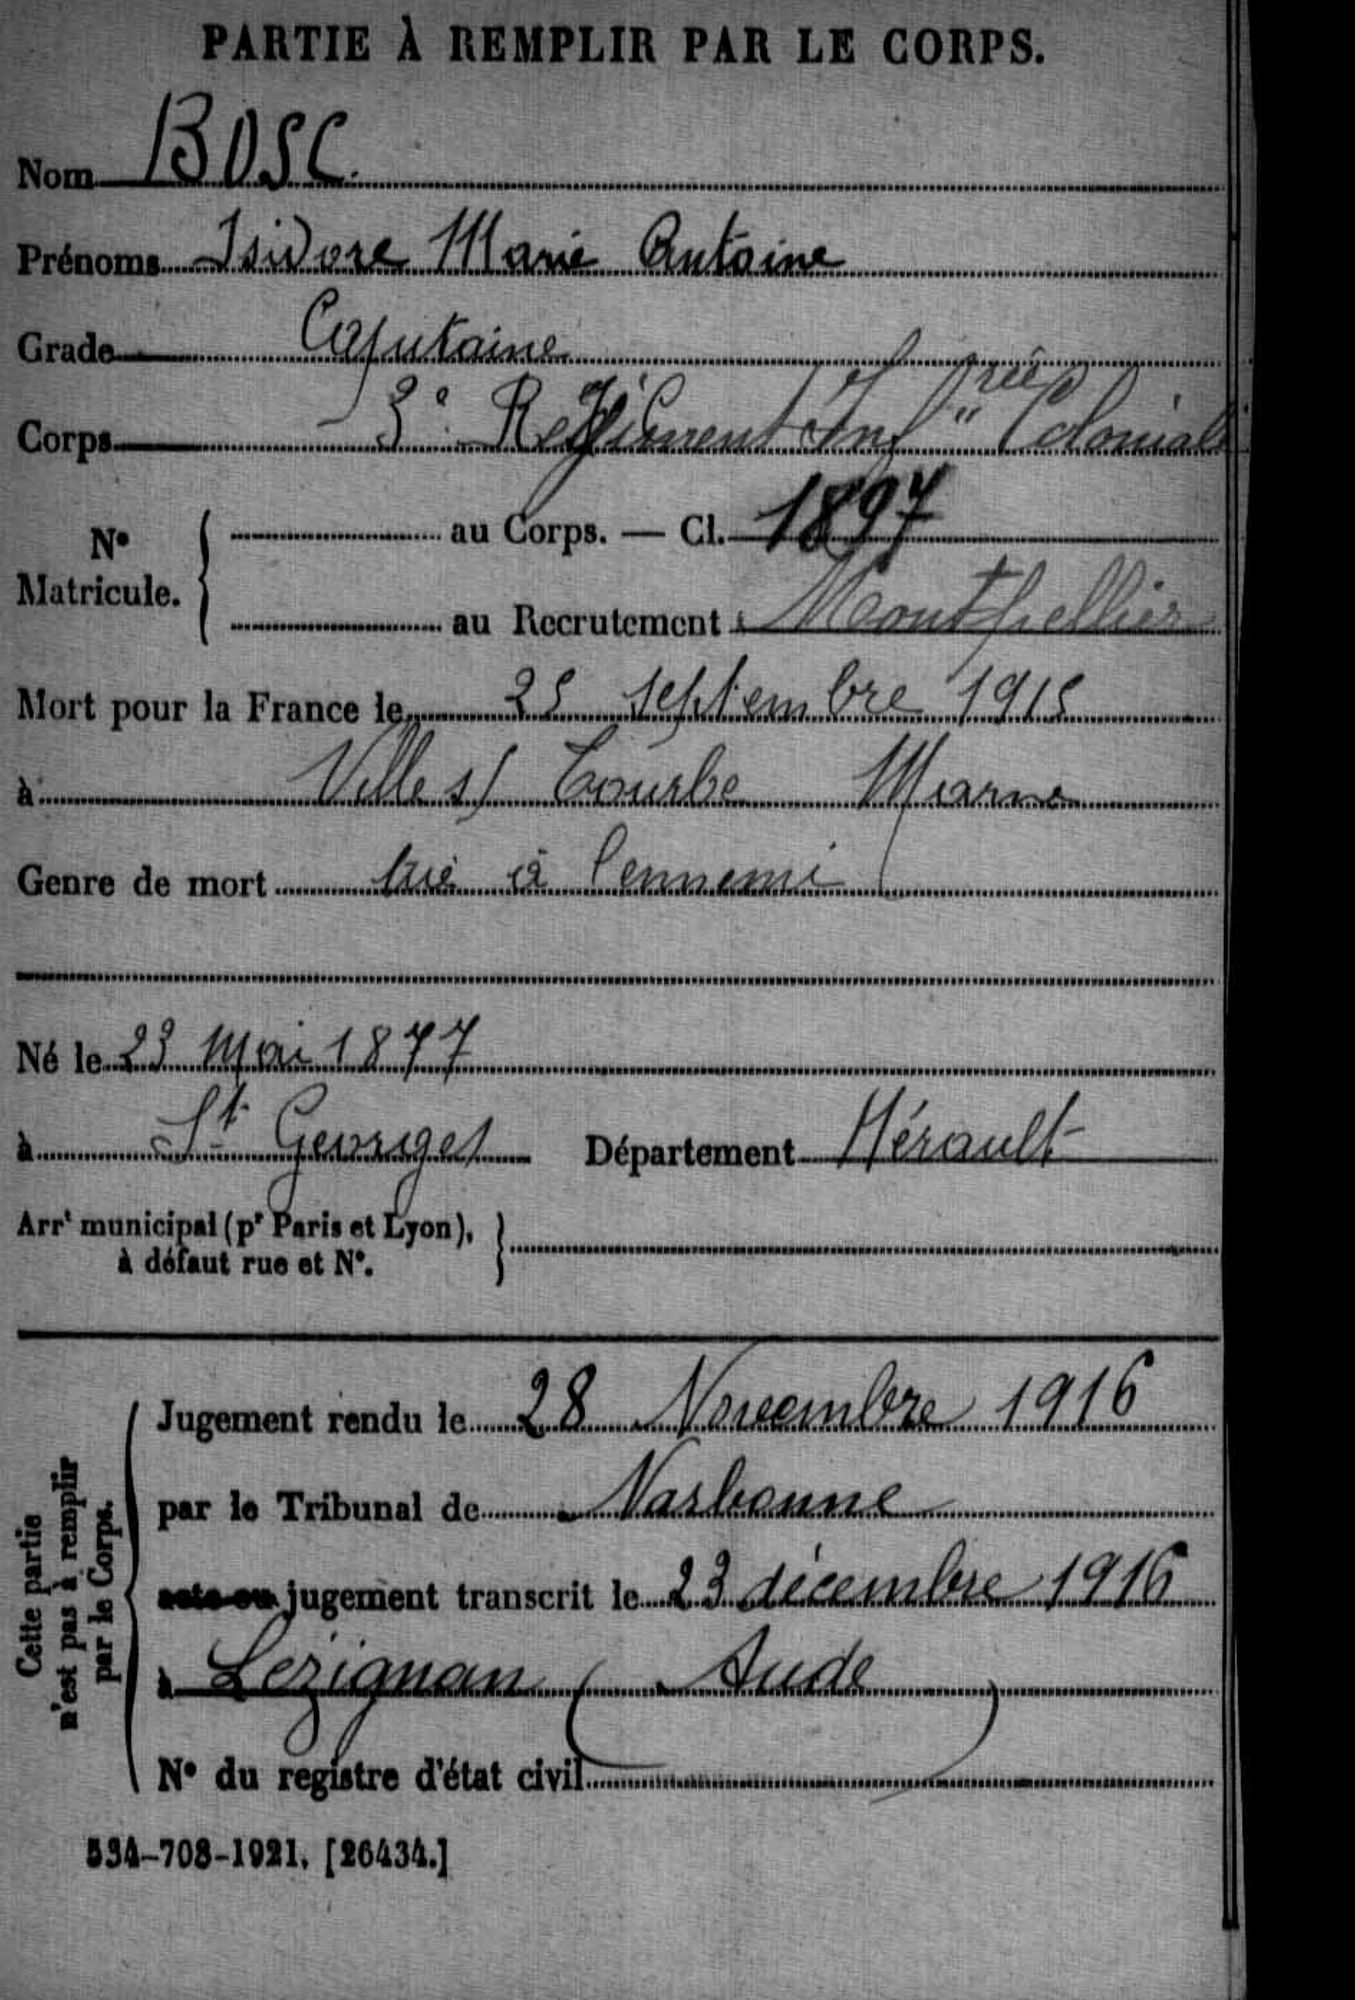 PARTIE À REMPLIR PAR LE CORPS.
Nom BOSC.
Prénoms Isidore Marie Antoine
Grade Capitaine
Corps 3e Régiment d'Infrie Coloniale
N° Matricule. { au Corps. — Cl. 1897
au Recrutement Montpellier
Mort pour la France le 25 septembre 1915
à Ville s/ Tourbe Marne
Genre de mort tué à l'ennemi
Né le 23 Mai 1877
à St Georges Département Hérault
Arrt municipal (pr Paris et Lyon), }
à défaut rue et N°.
Cette partie
n'est pas à remplir
par le Corps.
Jugement rendu le 28 Novembre 1916
par le Tribunal de Narbonne
acte ou jugement transcrit le 23 décembre 1916
à Lezignan (Aude)
N° du registre d'état civil
534-708-1921. [26434.]